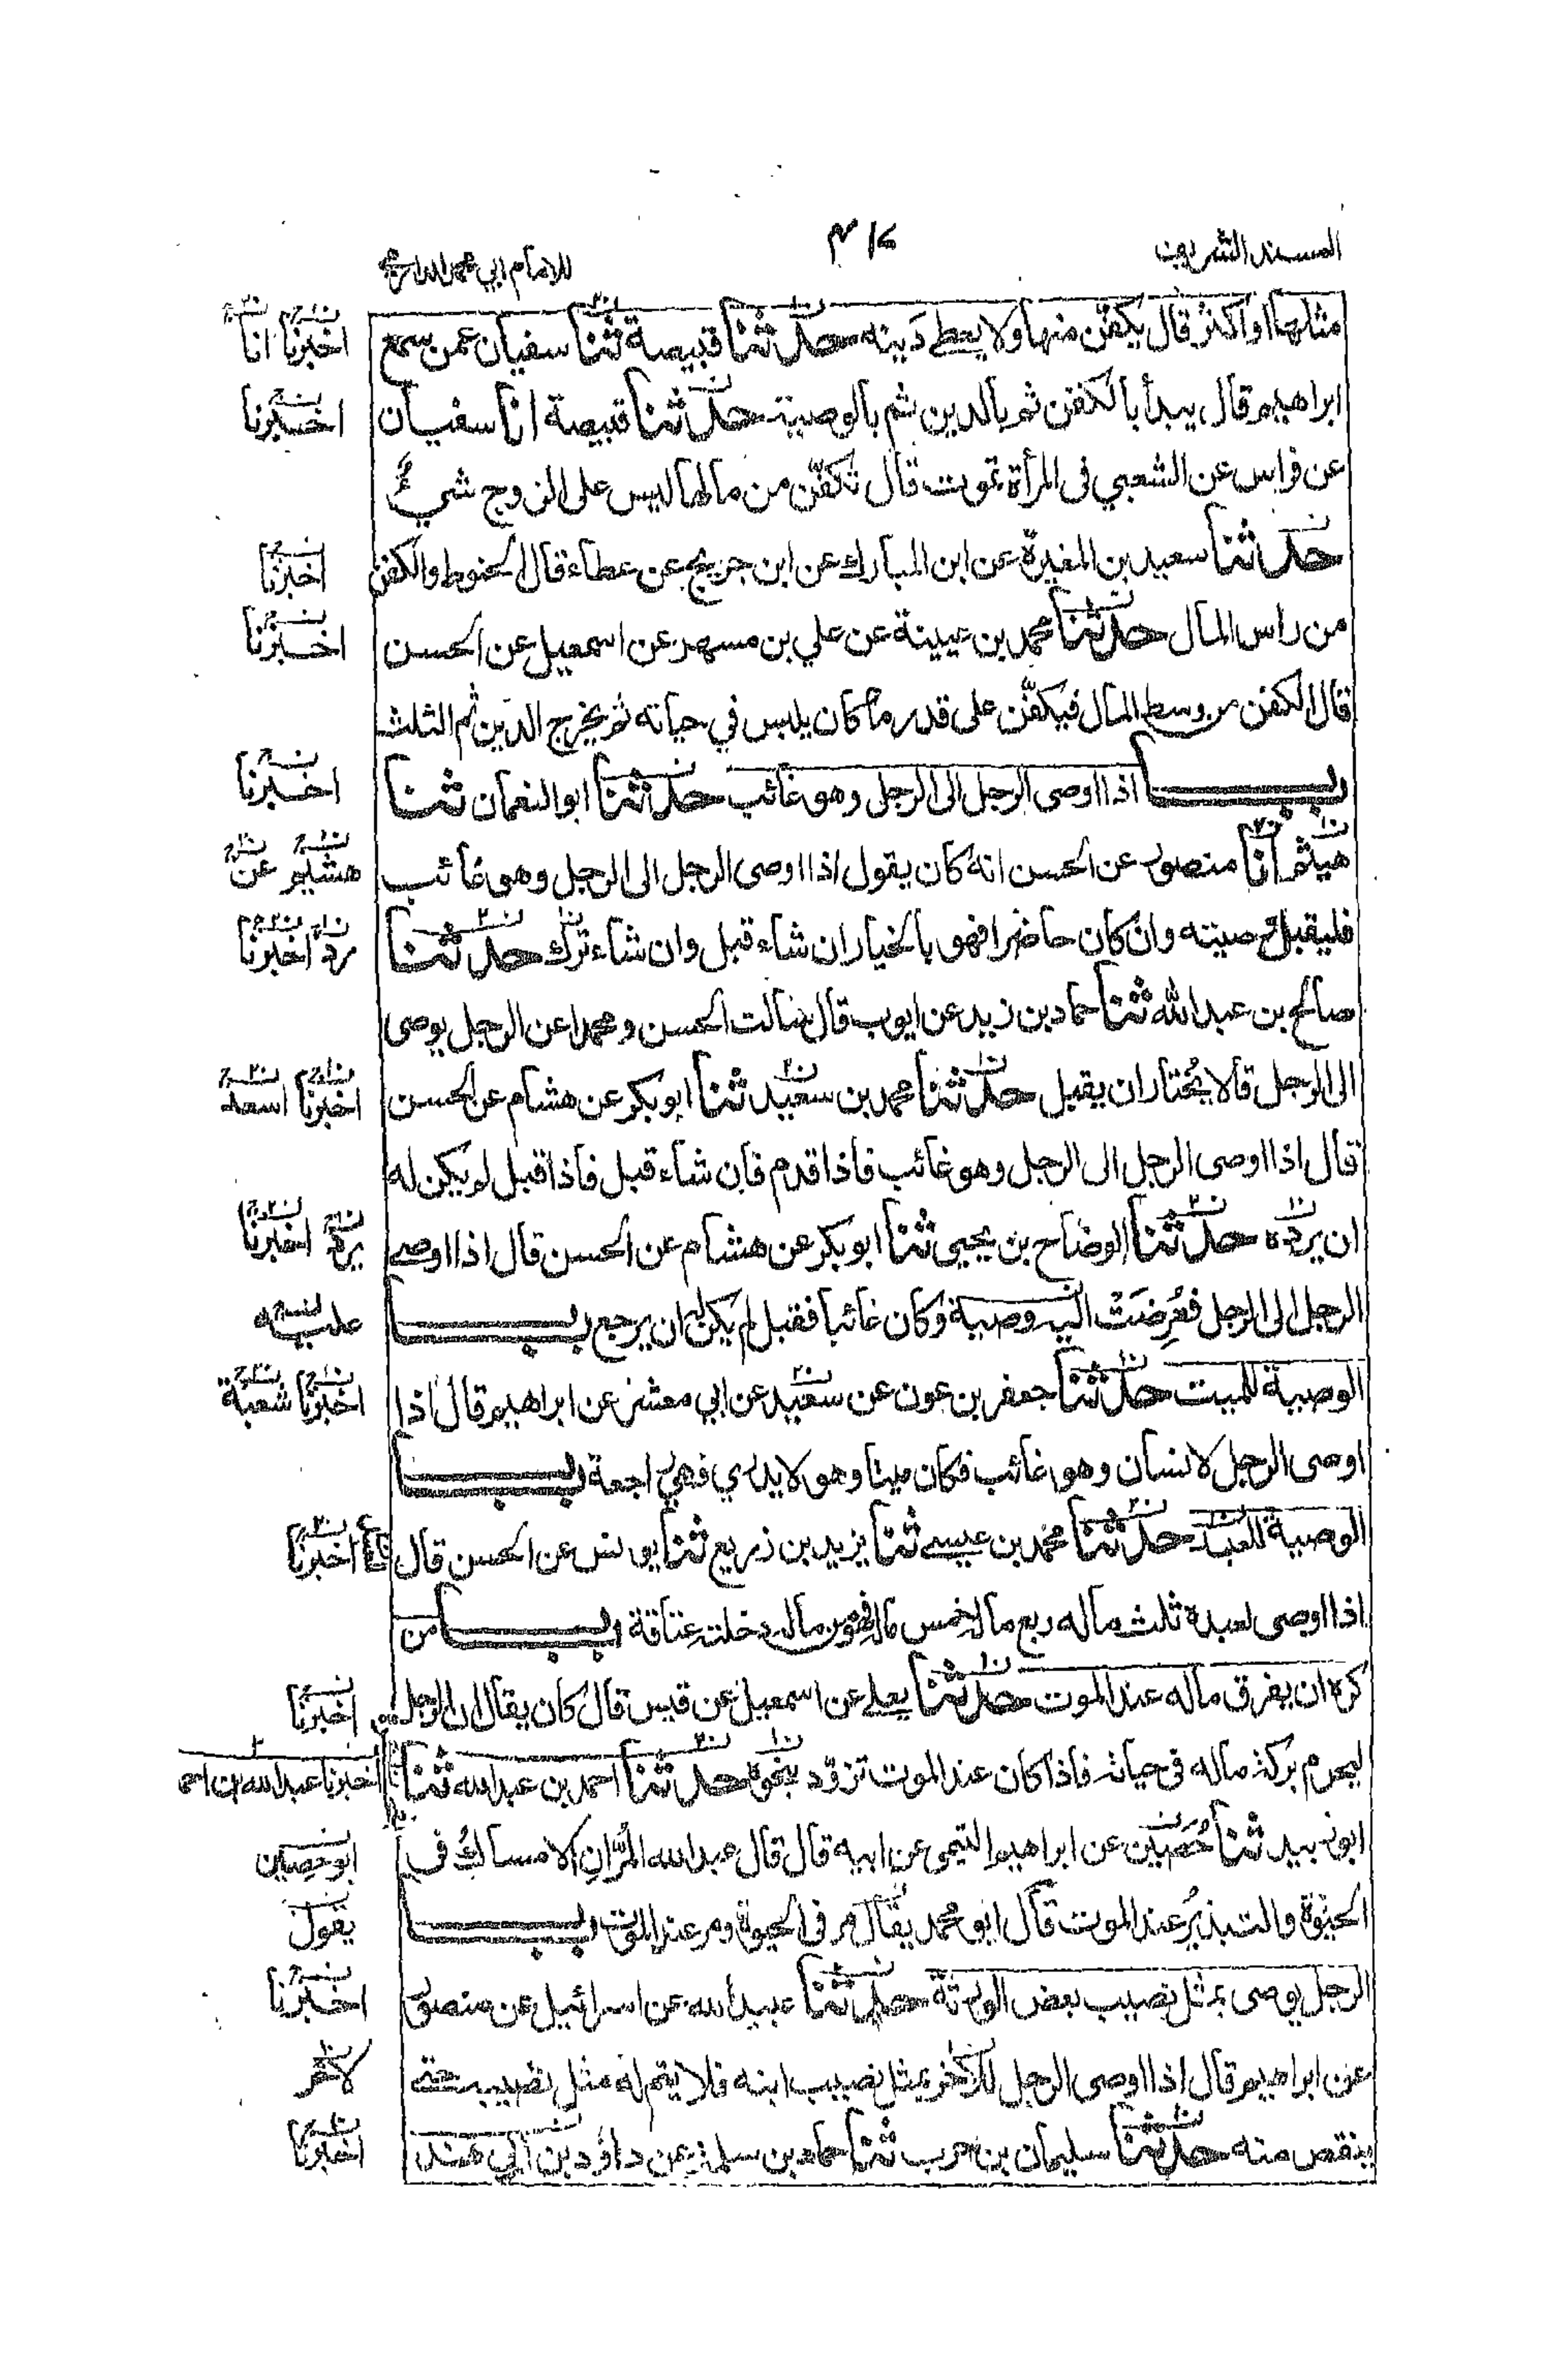 المسند الشريف
للامام ابي محمد الدارمي
مثلها او اكثر قال يكفّن منها ولا يعطى دَينه حدّثنا قبيصة ثنا سفيان عمن سمع
اخبرنا انا
ابراهيم قال يبدأ بالكفن ثم بالدين ثم بالوصية حدّثنا قبيصة انا سفيان
اخبرنا
عن فراس عن الشعبي فى المرأة تموت قال تكفّن من مالها ليس على الزوج شيءٌ
حدّثنا سعيد بن المغيرة عن ابن المبارك عن ابن جريج عن عطاء قال الحنوط والكفن
اخبرنا
من راس المال حدّثنا محمد بن عيينة عن علي بن مسهر عن اسمعيل عن الحسن
اخبرنا
قال الكفن من وسط المال فيكفّن على قدر ما كان يلبس في حياته ثم يخرج الدين ثم الثلث
باب اذا اوصى الرجل الى الرجل وهو غائب حدّثنا ابو النعمان ثنا
اخبرنا
هيثم انا منصور عن الحسن انه كان يقول اذا اوصى الرجل الى الرجل وهو غائب
هشيم عن
فليقبل وصيته وان كان حاضرا فهو بالخيار ان شاء قبل وان شاء ترك حدّثنا
رد اخبرنا
صالح بن عبد الله ثنا حماد بن زيد عن ايوب قال سالت الحسن ومحمدا عن الرجل يوصى
الى الرجل قالا يختار ان يقبل حدّثنا محمد بن سعيد ثنا ابو بكر عن هشام عن الحسن
اخبرنا اسعد
قال اذا اوصى الرجل الى الرجل وهو غائب فاذا قدم فان شاء قبل فاذا قبل لم يكن له
ان يردّه حدّثنا الوضاح بن يحيى ثنا ابو بكر عن هشام عن الحسن قال اذا اوصى
يردّ اخبرنا
الرجل الى الرجل فعُرِضَتْ اليه وصية وكان غائبا فقبل لم يكن له ان يرجع باب
عليه
الوصية للميت حدّثنا جعفر بن عون عن سعيد عن ابي معشر عن ابراهيم قال اذا
اخبرنا شعبة
اوصى الرجل لانسان وهو غائب فكان ميتا وهو لا يدري فهي راجعة باب
الوصية للعبد حدّثنا محمد بن عيسى ثنا يزيد بن زريع ثنا يونس عن الحسن قال
اخبرنا
اذا اوصى لعبده ثلث ماله ربع ماله خمس ماله فهو من ماله دخلته عتاقة باب من
كره ان يفرق ماله عند الموت حدّثنا يعلى عن اسمعيل عن قيس قال كان يقال ان الرجل
اخبرنا
ليحرم بركة ماله فى حياته فاذا كان عند الموت تزوّد حدّثنا احمد بن عبد الله ثنا
اخبرنا عبد الله بن احمد
ابو زبيد ثنا حُصَين عن ابراهيم التيمى عن ابيه قال قال عبد الله المُرّانِ الامساكُ فى
ابو حصين
الحيٰوة والتبذيرُ عند الموت قال ابو محمد يقال مر فى الحيوة ومر عند الموت باب
يقول
الرجل يوصى بمثل نصيب بعض الورثة حدّثنا عبيد الله عن اسرائيل عن منصور
اخبرنا
عن ابراهيم قال اذا اوصى الرجل للآخر بمثل نصيب ابنه فلا يتم له مثل نصيبه حتى
لآخر
ينقص منه حدّثنا سليمان بن حرب ثنا حماد بن سلمة عن داؤد بن ابي هند
اخبرنا